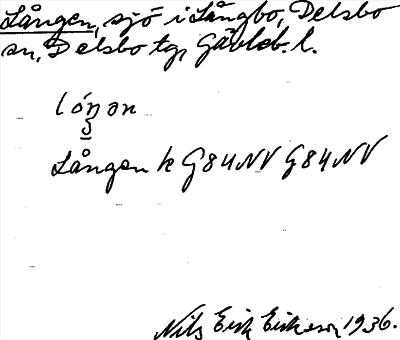 Lången, sjö i Långbo, Delsbo
sn, Delsbo tg, Gävleb. l.
lóŋən
Lången k G84NV G84NV
Nils Erik Eriksson 1936.